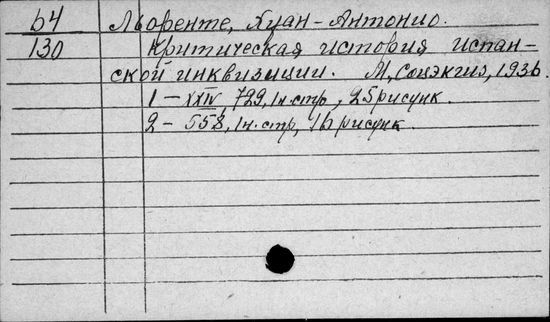 64 Льоренте, Хуан-Антонио.
130 Критическая история испан-
ской инквизиции. М, Соцэкгиз, 1936.
1 – XXIV, 729, 1н.стр, 25 рисунк.
2 – 558, 1н.стр, 16 рисунк.